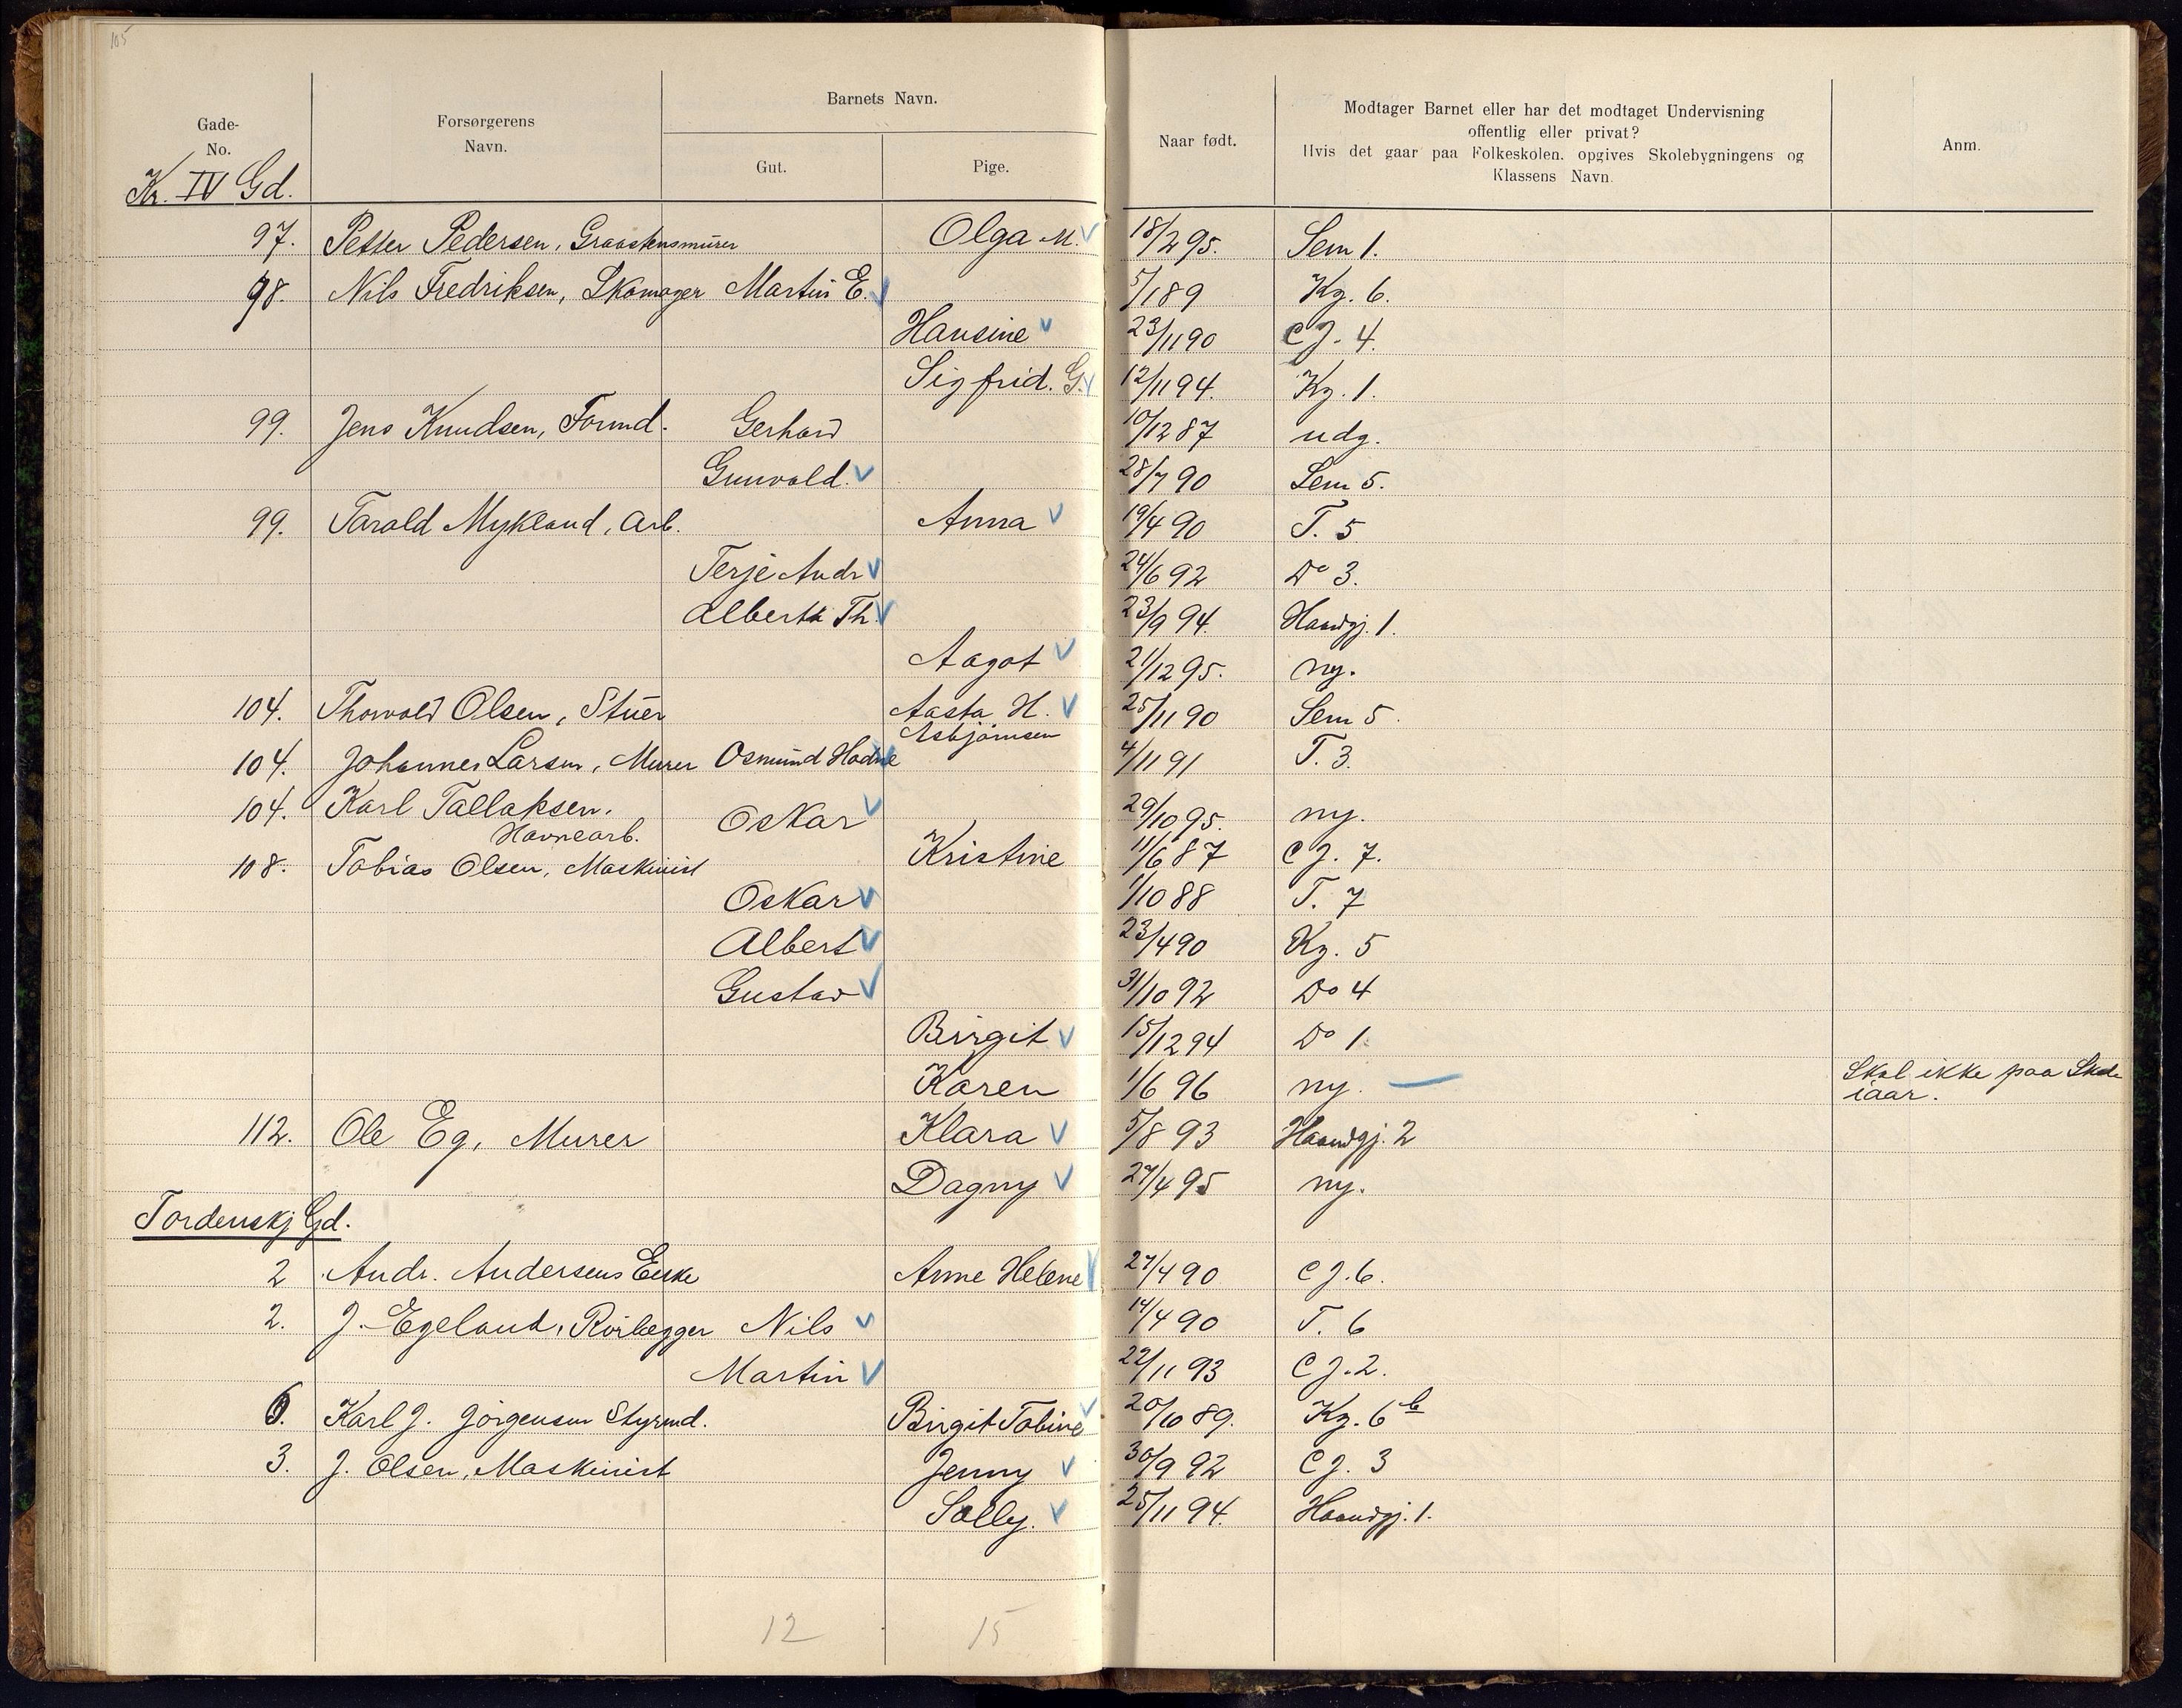 105
Barnets Navn.
Gade-
No.
Forsørgerens
Navn.
Gut.
Pige.
Naar født.
Modtager Barnet eller har det modtaget Undervisning
offentlig eller privat?
Hvis det gaar paa Folkeskolen, opgives Skolebygningens og
Klassens Navn.
Anm.
Kr. IV Gd.
97. Petter Pedersen, Graastensmurer Olga M. 18/2 95. Sem 1.
98. Nils Fredriksen, Skomager Martin E. 5/1 89 Kg. 6.
Hansine 23/11 90 CJ. 4.
Sigfrid. G. 12/11 94. Kg. 1.
99. Jens Knudsen, Formd. Gerhard 10/12 87 udg.
Gunvald. 28/7 90 Sem 5.
99. Tarald Mykland, Arb. Anna 19/4 90 T. 5
Terje Andr 24/6 92 Do 3.
Albert Th. 23/9 94. Haandgj. 1.
Aagot 21/12 95. ny.
104. Thorvald Olsen, Stuer Aasta H. Asbjörnsen 25/11 90 Sem 5.
104. Johannes Larsen, Murer Osmund Hodne 4/11 91 T. 3.
104. Karl Tallaksen. Oskar 29/10 95. ny.
Havnearb.
108. Tobias Olsen, Maskinist Kristine 11/6 87 CJ. 7.
Oskar 1/10 88 T. 7
Albert 23/4 90 Kg. 5
Gustav 31/10 92 Do 4
Birgit 15/12 94 Do 1.
Karen 1/6 96 ny. — Skal ikke paa Skole
iaar.
112. Ole Eg, Murer Klara 5/8 93 Haandgj. 2
Dagny 27/4 95 ny.
Tordenskj Gd.
2 Andr. Andersens Enke Anne Helene 27/4 90 CJ. 6.
2. J. Egeland, Rörlægger Nils 14/4 90 T. 6
Martin 22/11 93 CJ. 2.
6. Karl J. Jörgensen Styrmd. Birgit Tobine 20/10 89. Kg. 6 b
3. J. Olsen, Maskinist Jenny 30/9 92 CJ. 3
Solly. 25/11 94. Haandgj. 1.
12 15